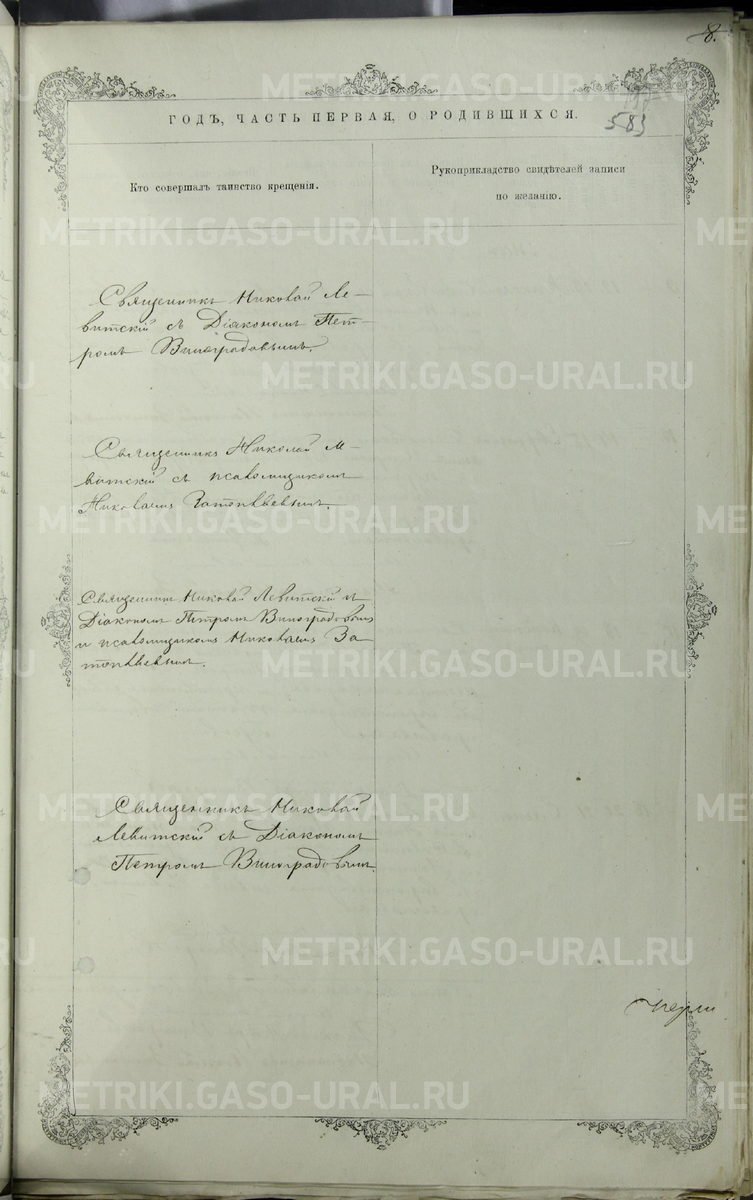 8.
583
ГОДЪ, ЧАСТЬ ПЕРВАЯ, О РОДИВШИХСЯ.
Кто совершалъ таинство крещенія.
Рукоприкладство свидѣтелей записи
по желанію.
Священникъ Николай Ле-
витскій съ Діакономъ Пет-
ромъ Виноградовымъ.
Священникъ Николай Ле-
витскій съ псаломщикомъ
Николаемъ
Священникъ Николай Левитскій съ
Діакономъ Петромъ Виноградовымъ
и псаломщикомъ Николаемъ За-
Священникъ Николай
Левитскій съ Діакономъ
Петромъ Виноградовымъ.
METRIKI.GASO-URAL.RU